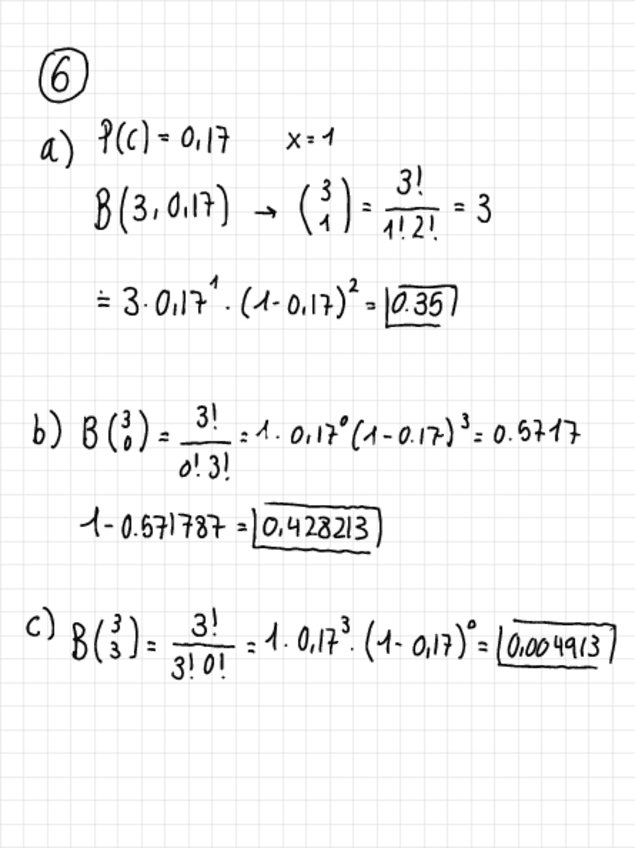 6
a) P(C) = 0,17 x = 1
B(3, 0,17) → (3 1) = 3! / 1! 2! = 3
= 3 · 0,17¹ · (1 - 0,17)² = 0.35
b) B(3 0) = 3! / 0! 3! = 1 · 0,17⁰ (1 - 0.17)³ = 0.5717
1 - 0.571787 = 0,428213
c) B(3 3) = 3! / 3! 0! = 1 · 0,17³ · (1 - 0,17)⁰ = 0,004913